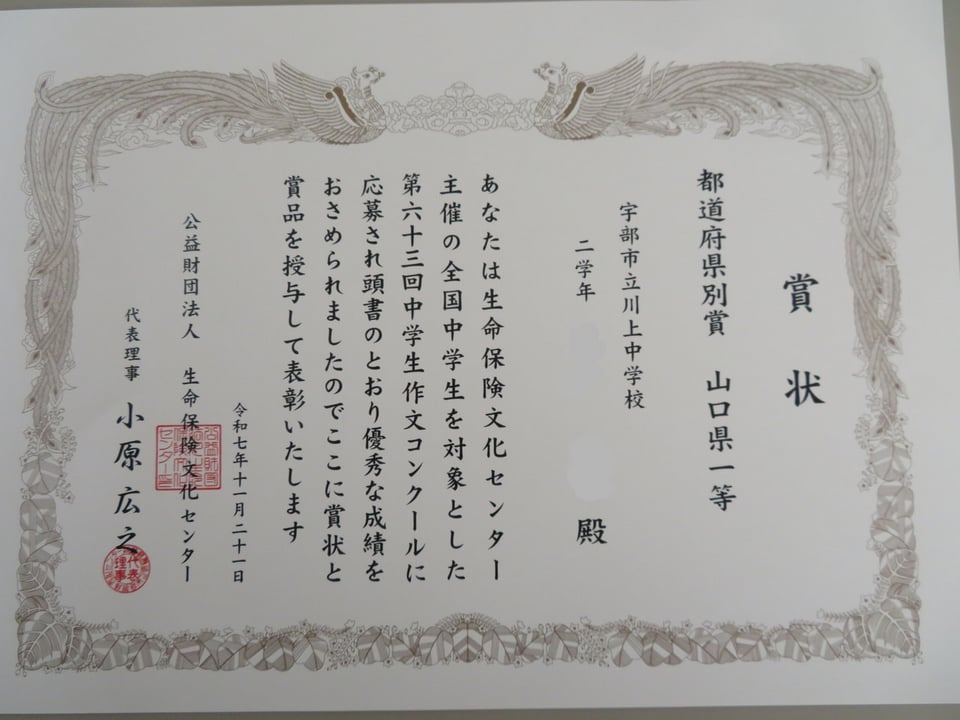 賞状
都道府県別賞 山口県一等
宇部市立川上中学校
二学年
殿
あなたは生命保険文化センター
主催の全国中学生を対象とした
第六十三回中学生作文コンクールに
応募され頭書のとおり優秀な成績を
おさめられましたのでここに賞状と
賞品を授与して表彰いたします
令和七年十一月二十一日
公益財団法人 生命保険文化センター
代表理事 小原広之
公益財団
センター
代表
理事